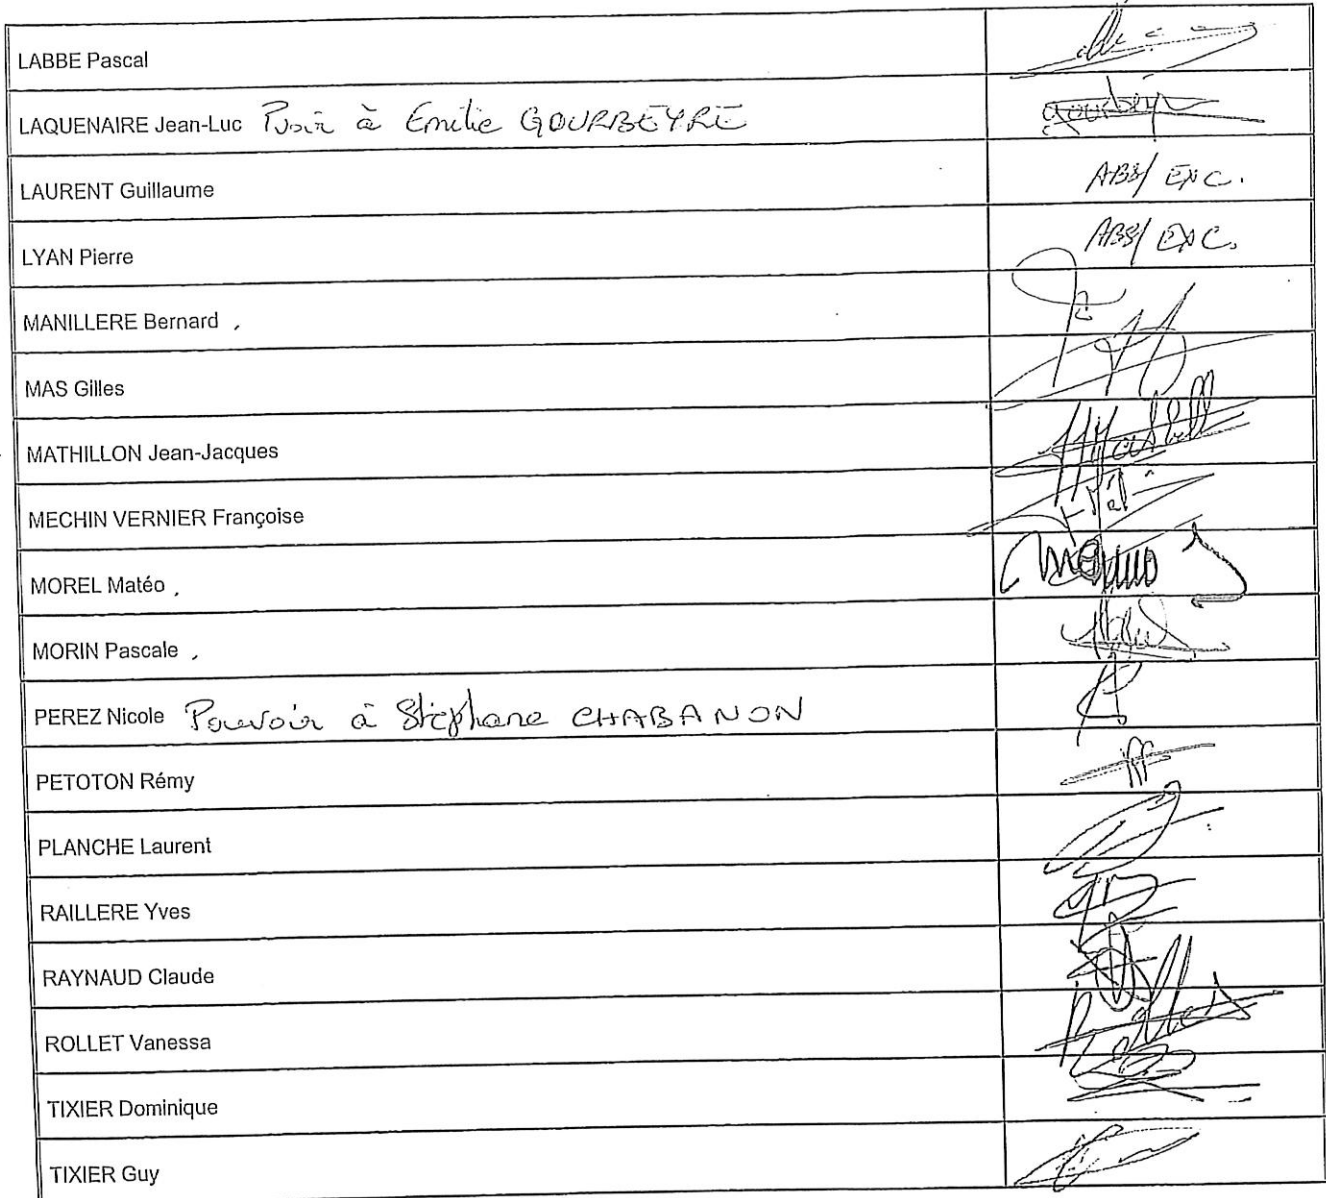 LABBE Pascal
LAQUENAIRE Jean-Luc Pvoir à Emilie GOURBEYRE
LAURENT Guillaume ABS/ EXC.
LYAN Pierre ABS/ EXC.
MANILLERE Bernard
MAS Gilles
MATHILLON Jean-Jacques
MECHIN VERNIER Françoise
MOREL Matéo
MORIN Pascale
PEREZ Nicole Pouvoir à Stéphane CHABANON
PETOTON Rémy
PLANCHE Laurent
RAILLERE Yves
RAYNAUD Claude
ROLLET Vanessa
TIXIER Dominique
TIXIER Guy